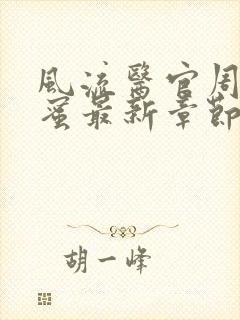 風流醫官周
蜜最新章節
胡一峰